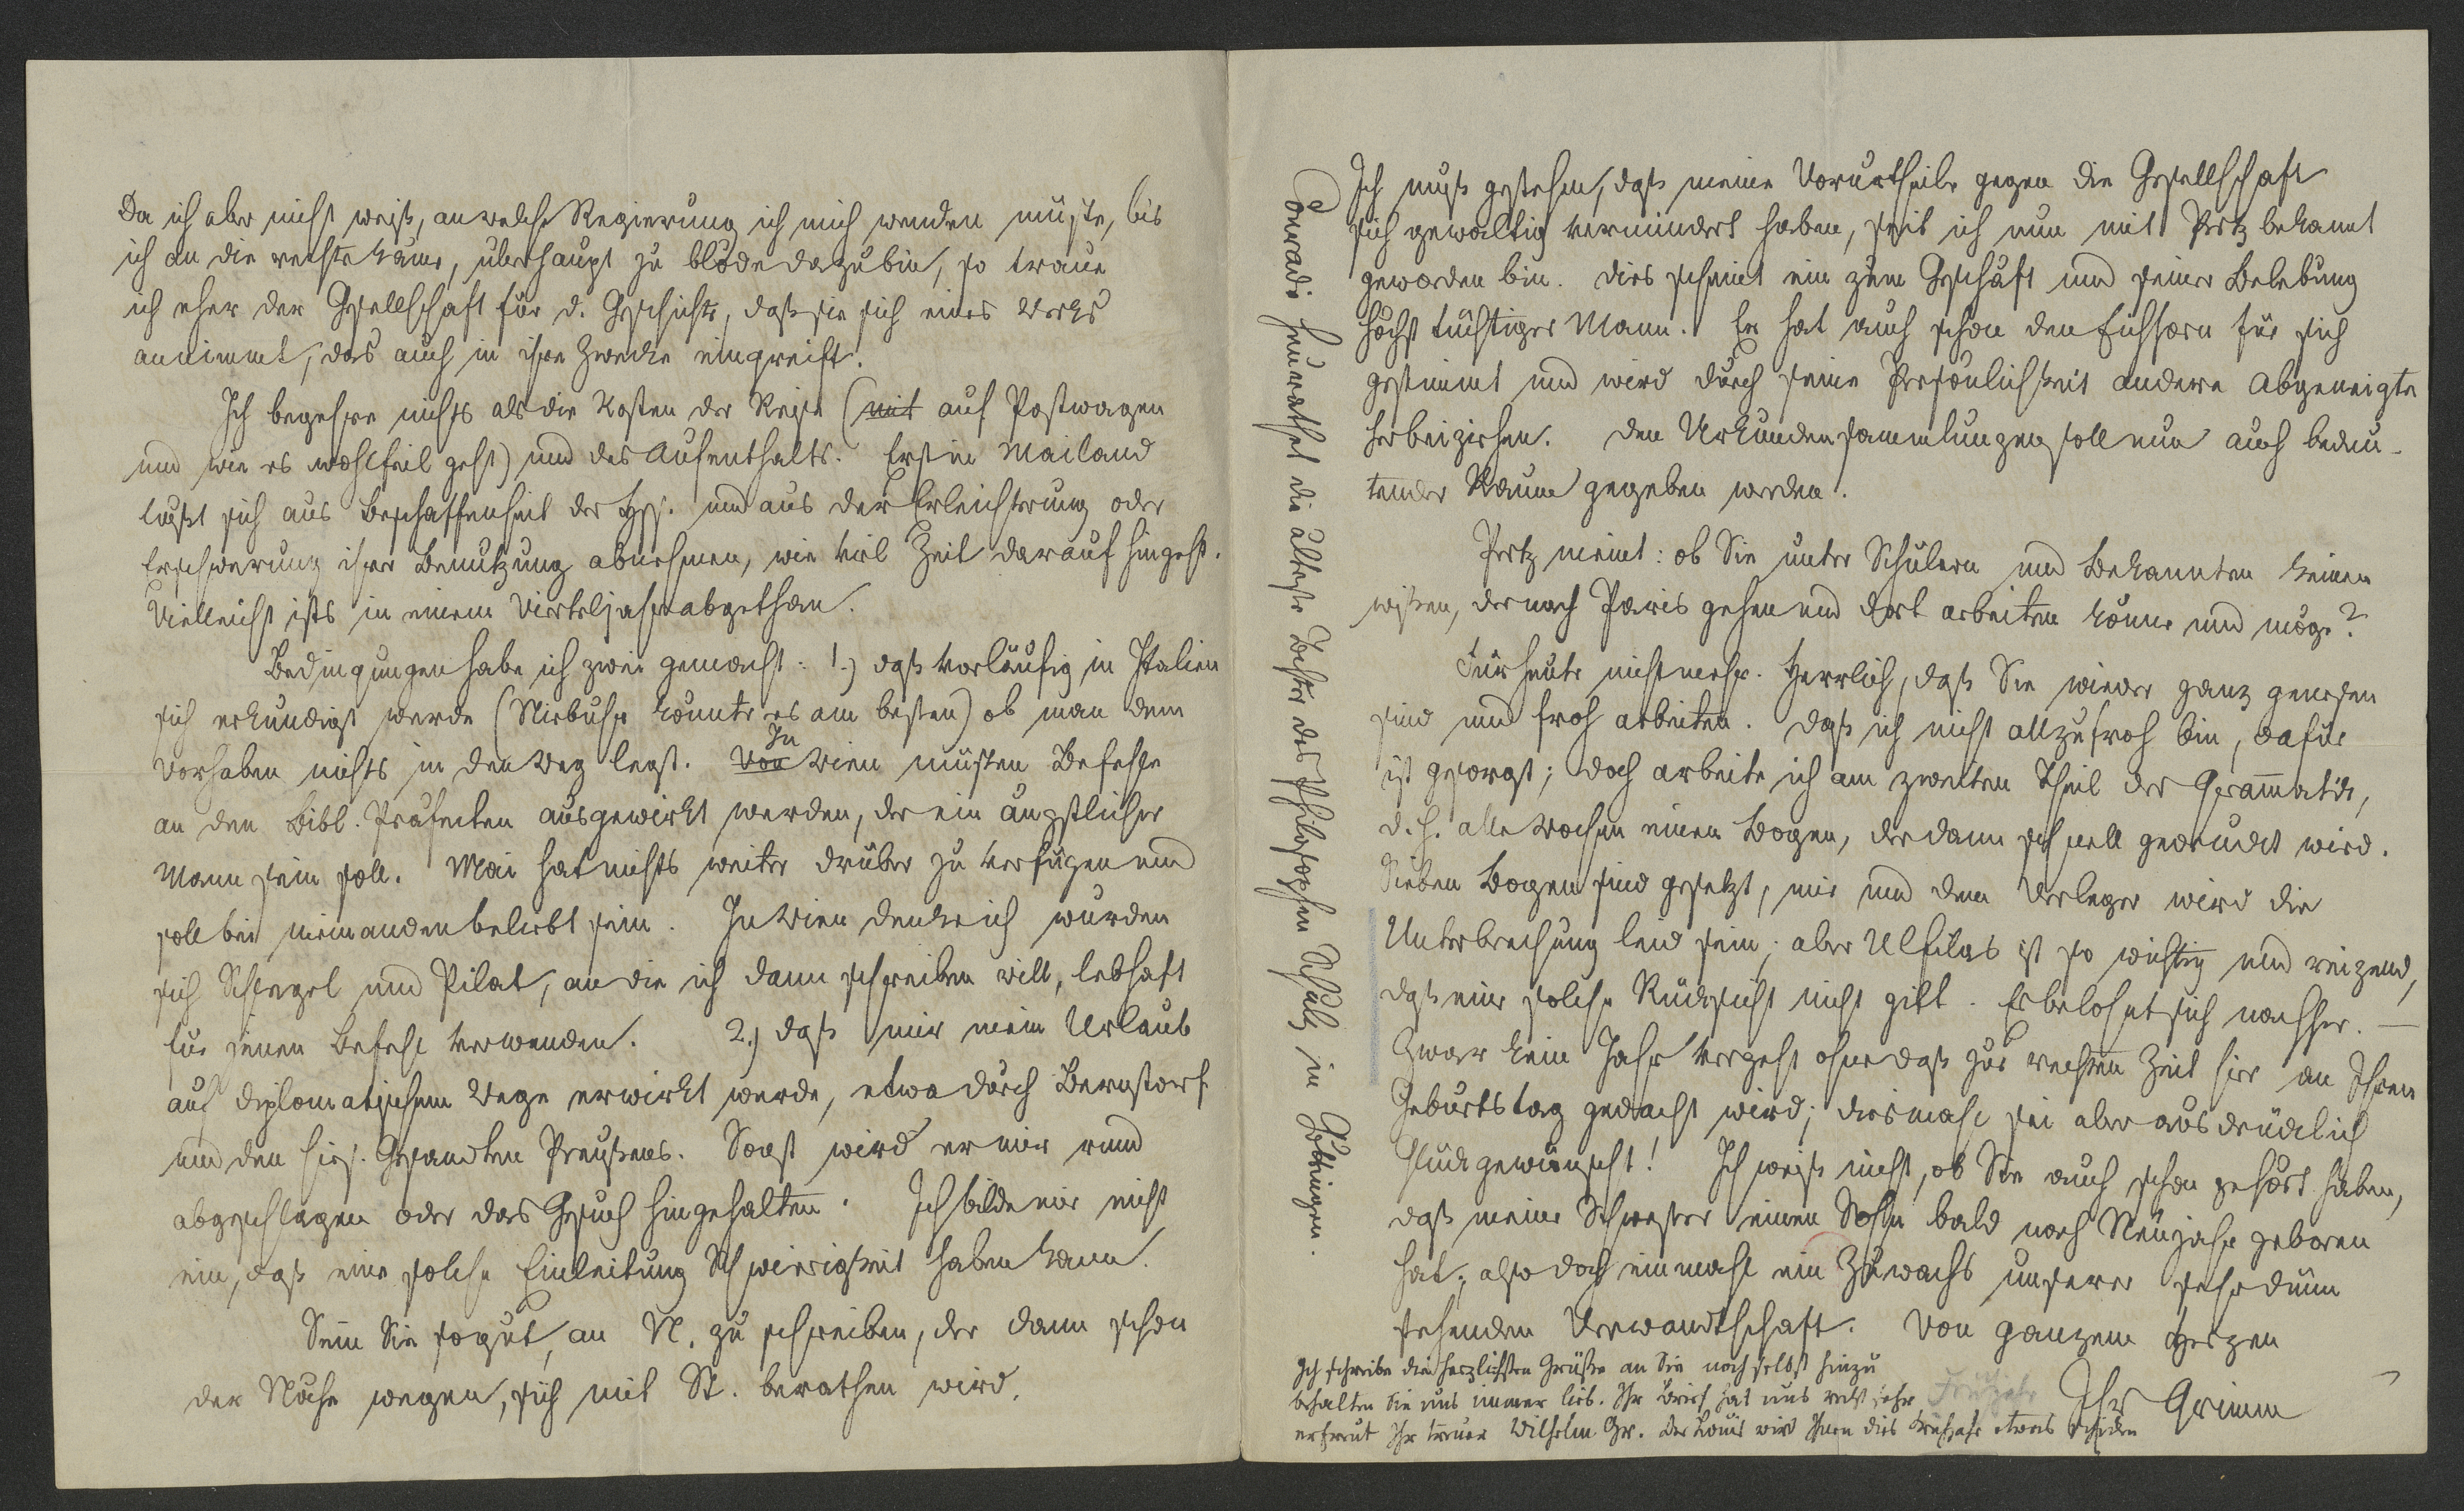 Da ich aber nicht weiß, an welche Regierung ich mich wenden müste, bis
ich an die rechte käme, überhaupt zu blöde dazu bin, so traue
ich eher der Gesellschaft für d. Geschichte, daß sie sich eines Werks
annimmt, das auch in ihre Zwecke eingreift.
Ich begehre nichts als die Kosten der Reise (mit auf Postwagen
und wie es wohlfeil geht) und des Aufenthalts. Erst in Mailand
läßt sich aus Beschaffenheit der Hss. und aus der Erleichterung oder
Erschwerung ihrer Benutzung abnehmen, wie viel Zeit darauf hingeht.
Vielleicht ists in einem Vierteljahr abgethan.
Bedingungen habe ich zwei gemacht: 1.) daß vorläufig in Italien
sich erkundigt werde (Niebuhr könnte es am besten) ob man dem
Vorhaben nichts in den Weg legt. Von In Wien müsten Befehle
an den Bibl. Präfecten ausgewirkt werden, der ein ängstlicher
Mann sein soll. Mai hat nichts weiter drüber zu verfügen und
soll bei niemanden beliebt sein. In Wien denke ich würden
sich Schlegel und Pilat, an die ich dann schreiben will, lebhaft
für jenen Befehl verwenden. 2.) daß mir mein Urlaub
auf diplomatischem Wege erwirkt werde, etwa durch Bernstorf
und den hies. Gesandten Preußens. Sonst wird er mir rund
abgeschlagen oder das Gesuch hingehalten. Ich bilde mir nicht
ein, daß eine solche Einleitung Schwierigkeit haben kann.
Sein Sie so gut, an N. zu schreiben, der dann schon
der Nähe wegen, sich mit St. berathen wird.
Conradi heurathet die älteste Tochter des Philosophen Schulz in Göttingen.
Ich muß gestehen, daß meine Vorurtheile gegen die Gesellschaft
sich gewaltig vermindert haben, seit ich nun mit Pertz bekannt
geworden bin. Dies scheint ein zum Geschäft und seiner Belebung
höchst tüchtiger Mann. Er hat auch schon den Eichhorn für sich
gestimmt und wird durch seine Persönlichkeit andere Abgeneigte
herbeiziehen. Den Urkundensammlungen soll nun auch bedeu-
tender Raum gegeben werden.
Pertz meint: ob Sie unter Schülern und Bekannten keinen
wißen, der nach Paris gehen und dort arbeiten könne und möge?
Für heute nicht mehr. Herrlich, daß Sie wieder ganz genesen
sind und froh arbeiten. Daß ich nicht allzufroh bin, dafür
ist gesorgt; doch arbeite ich am zweiten Theil der Grammatik,
d. h. alle Wochen einen Bogen, der dann schnell gedruckt wird.
Sieben Bogen sind gesetzt, mir und dem Verleger wird die
Unterbrechung leid sein; aber Ulfilas ist so wichtig und reizend,
daß eine solche Rücksicht nicht gilt. Er belohnt sich nachher. —
Zwar kein Jahr vergeht ohne daß zur rechten Zeit hier an Ihren
Geburtstag gedacht wird; diesmahl sei aber ausdrücklich
Glück gewünscht! Ich weiß nicht, ob Sie auch schon gehört haben,
daß meine Schwester einen Sohn bald nach Neujahr geboren
hat; also doch einmahl ein Zuwachs unserer sehr dünn
stehenden Verwandtschaft. Von ganzem Herzen
Ihr Grimm
Ich schreibe die herzlichsten Grüße an Sie noch selbst hinzu
behalten Sie uns immer lieb. Ihr Brief hat uns recht sehr Frühjahr
erfreut Ihr treuer Wilhelm Gr. Der Louis wird Ihnen dies Frühjahr etwas schicken